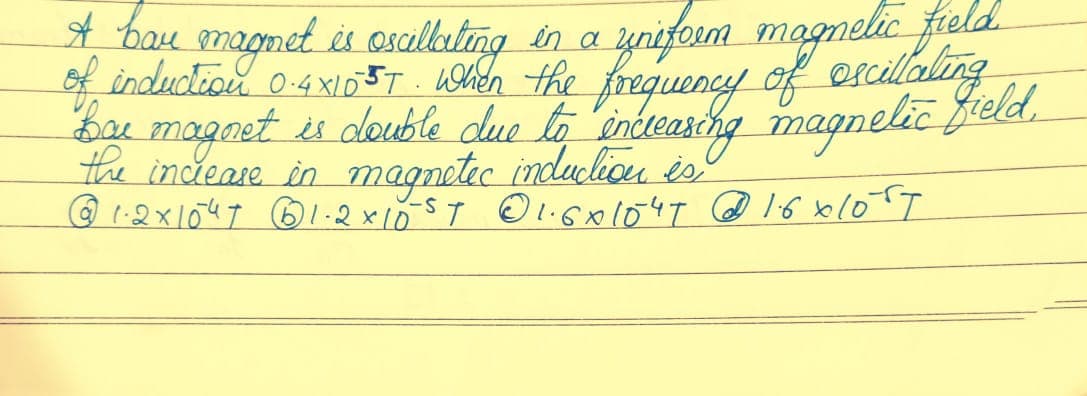 A bar magnet is oscillating in a uniform magnetic field
of induction 0.4x10⁻⁵T. When the frequency of oscillating
bar magnet is double due to increasing magnetic field,
the increase in magnetic induction is,
ⓐ 1.2x10⁻⁴T ⓑ 1.2x10⁻⁵T ⓒ 1.6x10⁻⁴T ⓓ 1.6x10⁻⁵T